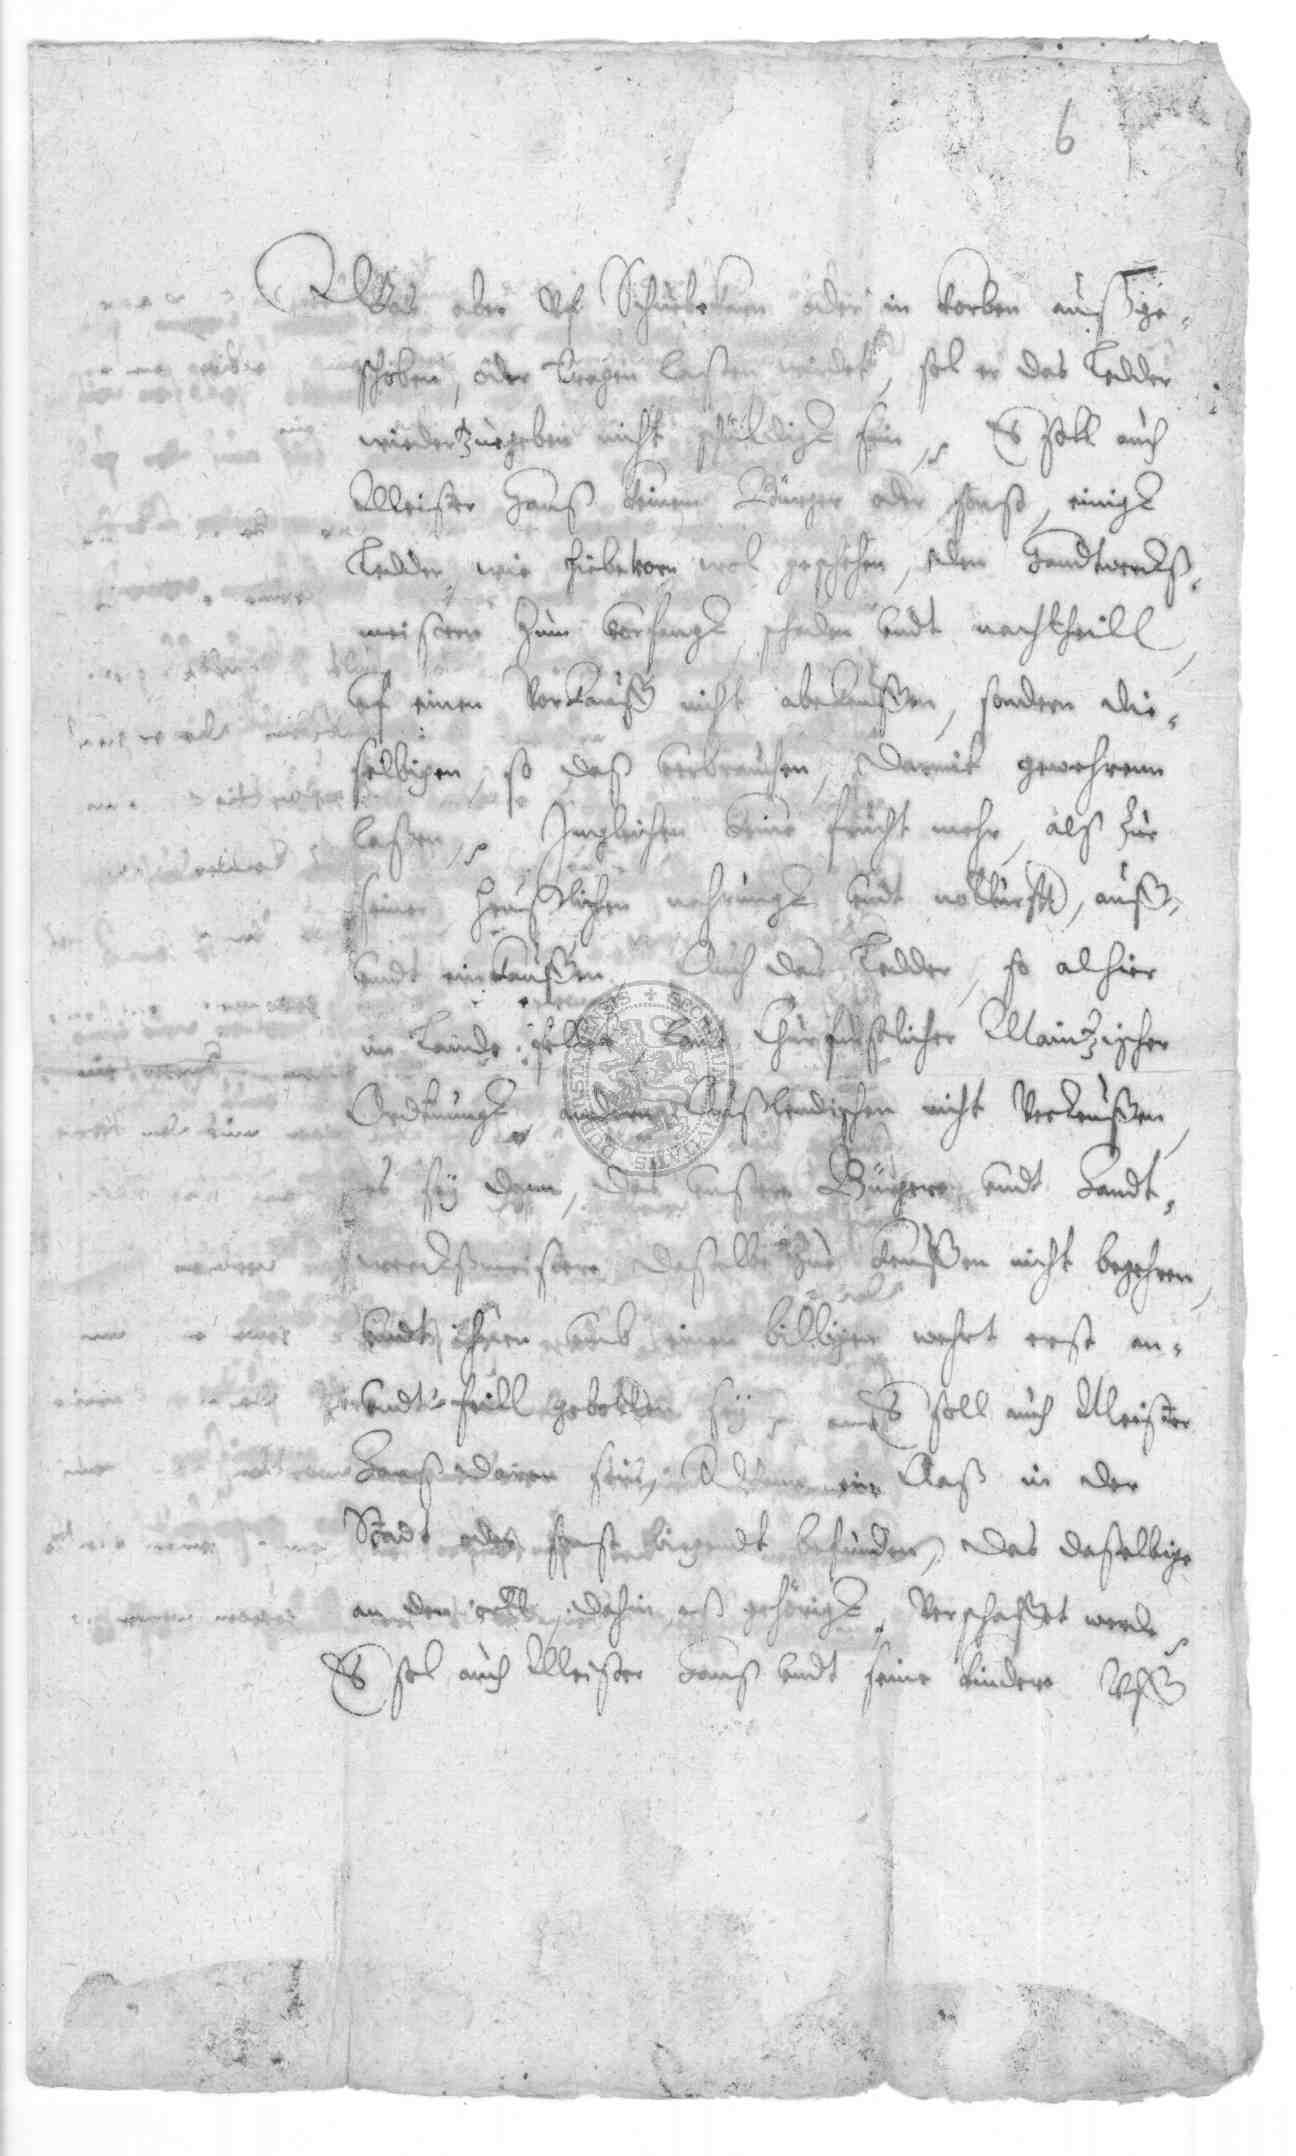 6
Was aber Vf Schubekarn oder in korben außge-
schoben, oder tragen laßen würdet, sol er das Ledder
wieder zugeben nicht schuldigk sein, Es soll auch
Meister Hanß keinem Bürger oder sonst, einigk
Ledder, wie hiebevorn wol geschehen, den Handtwerckß-
meistern zum vorfangk, schaden undt nachtheill,
uf einen Vorkauff nicht abekauffen, sondern die-
selbigen, so daß verbrauchen, damit gewehrenn
laßen, Imgleichen keine frucht mehr, alß zur
seiner heußlichen nahrungk undt notturfft, auff-
undt einkauffen Auch das Ledder, so alhier
im Lande felltt, laut Churfürstlicher Maintzischer
Ordnungk, andern Außlendischen nicht Verkauffen,
es sey dann, das unsere Bürgere undt Handt-
werckßmeistere daßelbe zu kauffen nicht begehren,
undt ihnen umb einen billigen wehrt erst an-
undt feill gebotten sey, Es soll auch Meister
Hanß daran sein, Wann ein Aaß in der
Stadt oder sonst liegendt befunden, das daßelbige
an den ortt, dahin eß gehörigk, Verschaffet werde
Es sol auch Meister Hanß undt seine kindere Vff
SECRETUM CIVITATIS DUDERSTADENSIS